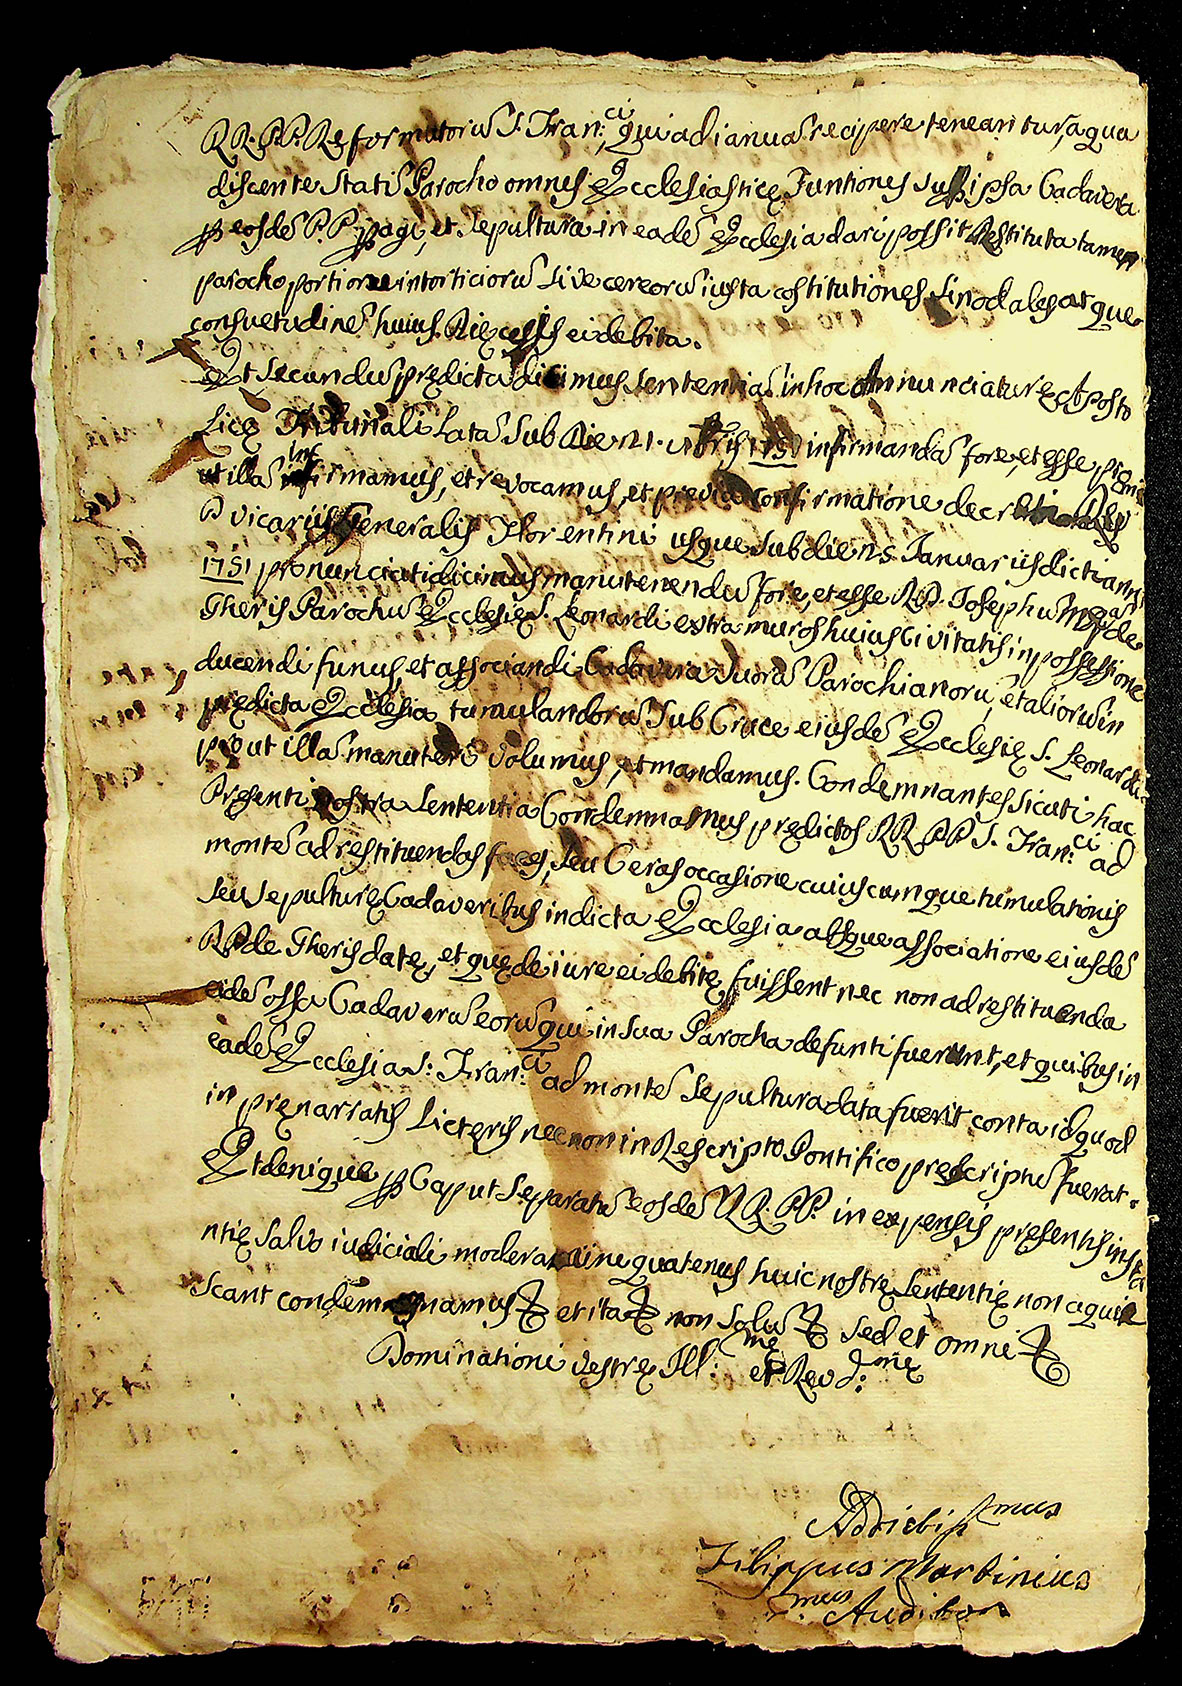 RR. PP. Reformatorũ S. Fran:ci, qui ad ianuã recipere teneantur, a qua
discente statĩ Parocho omnes Ecclesiasticę Funtiones sup ipsa Cadavera
p eosdẽ P.P. pagi, et sepultura in eadẽ Ecclesia dari possit Restituta tamen
parocho portione intorticiorũ sive cereorũ iusta costitutiones sinodales atque
consuetudinẽ huius Diecesis ei debita.
Et secundũ prędicta dicimus sententiã in hoc Annunciaturę Aposto
licę Tribunali latã sub Die 21. 1751 infirmandã fore, et esse, prout
ut illã infirmamus, et revocamus, et previa confirmatione decreti
D Vicarius Generalis Florentini usque sub die 25. Ianuarii dicti anni
1751 pronunciati dicimus manutenendũ fore, et esse R.D. Iosephũ de
Gheris Parochũ Ecclesię S. Leonardi extra muros huius Civitatis in possessione
ducendi funus, et associandi Cadavera suorũ Parochianorũ, et aliorum in
prędicta Ecclesia tumulandorũ sub Cruce eiusdẽ Ecclesię S. Leonardi
prout illũ manuteri volumus, et mandamus. Condemnantes sicuti hac
Pręsenti nostra sententia Condemnamus prędictos RR PP S. Fran:ci ad
montẽ ad restituendas faces, seu Ceras occasione cuiuscunque tumulationis
seu sepulturę Cadaveribus in dicta Ecclesia absque associatione eiusdẽ
RP de Gheris datę, et quę de iure ei debitę fuissent nec non ad restituenda
eidẽ ossa Cadaverũ eorũ qui in sua Parocha defunti fuerunt, et quibus in
eadẽ Ecclesia S: Fran:ci ad montẽ sepultura data fuerit conta id quod
in prenarratis Licteris nec non in Rescripto Pontifico prescriptũ fuerat.
Et denique p Caput separatũ eosdẽ RR. PP. in expensis pręsentis insta
ntię salvo iudiciali moderamine quatenus huic nostrę sententię non aquie
scant condemnamus et ita non solũ sed et omni
Dominationi vestrę Ill:mę et Revd:mę
Addictissmus
Filippus Martinius
Auditor